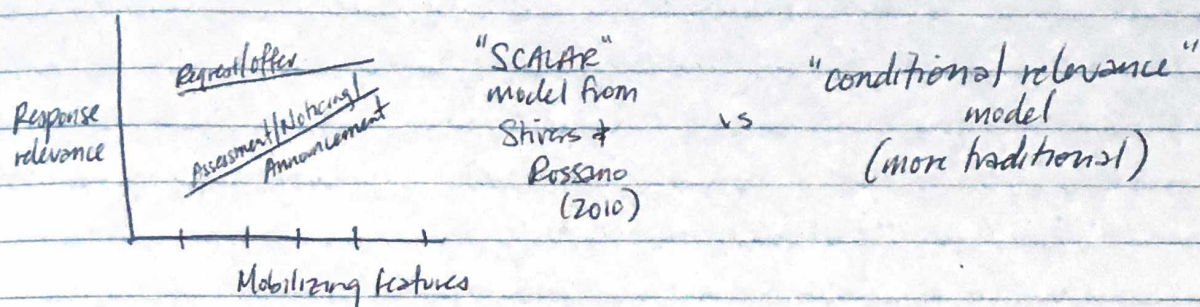 Response
relevance
Request/offer
Assessment/Noticing/
Announcement
Mobilizing features
"SCALAR"
model from
Stivers &
Rossano
(2010)
vs
"conditional relevance"
model
(more traditional)